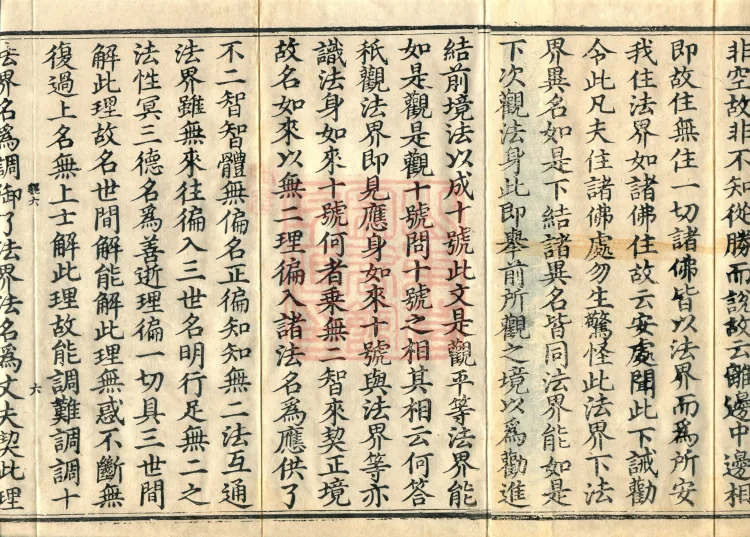 非空故非不知從勝而說故云離邊中邊相
即故住無住一切諸佛皆以法界而爲所安
我住法界如諸佛住故云安處聞此下誡勸
令此凡夫住諸佛處勿生驚怪此法界下法
界異名如是下結諸異名皆同法界能如是
下次觀法身此即舉前所觀之境以爲勸進
結前境法以成十號此文是觀平等法界能
如是觀是觀十號問十號之相其相云何答
秖觀法界即見應身如來十號與法界等亦
識法身如來十號何者乘無二智來契正境
故名如來以無二理徧入諸法名爲應供了
不二智智體無偏名正徧知知無二法互通
法界雖無來往徧入三世名明行足無二之
法性冥三德名爲善逝理徧一切具三世間
解此理故名世間解能解此理無惑不斷無
復過上名無上士解此理故能調難調調十
法界名爲調御了法界法名爲丈夫契此理
輕六
六